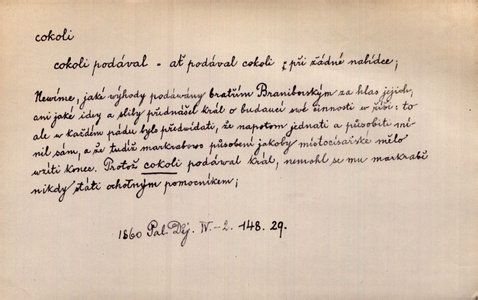 cokoli
cokoli podával - ať podával cokoli, při žádné nabídce;
Nevíme, jaké výhody podávány bratřím Braniborským za hlas jejich,
ani jaké idey a sliby přednášel král o budoucí své činnosti w říši: to
ale w každém pádu bylo předwídati, že napotom jednati a působiti mí-
nil sám, a že tudíž markrabowo působení jakoby místocísařské mělo
wzíti konec. Protož cokoli podáwal král, nemohl se mu markrabě
nikdy státi ochotným pomocníkem;
1860 Pal. Děj. IV.-2. 148. 29.